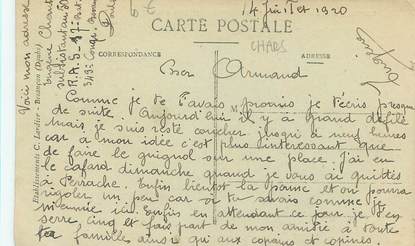 14 Juillet 1920
6 €
CARTE POSTALE
CHARS
CORRESPONDANCE
ADRESSE
Voici mon adresse
Eugène
substistant au
343
Etablissements C. Lardier - Besançon (Doubs)
Cher Armand
Comme je te l'avais promis je t'écris presque
de suite. Aujourd'hui il y a grand défilé
Mais je suis resté coucher jusqu'à neuf heures
car a mon idée c'est plus interessant que
de faire le guignol sur une place. J'ai eu
le cafard dimanche quand je vous ai quittés
à Perrache. Enfin bientôt la perme et on pourra
rigoler un peu car si tu savais comme je
m'ennuie ici. Enfin en attendant ce jour je t'en
serre cinq et fais part de mon amitié à toute
ta famille ainsi que aux copains et copines.